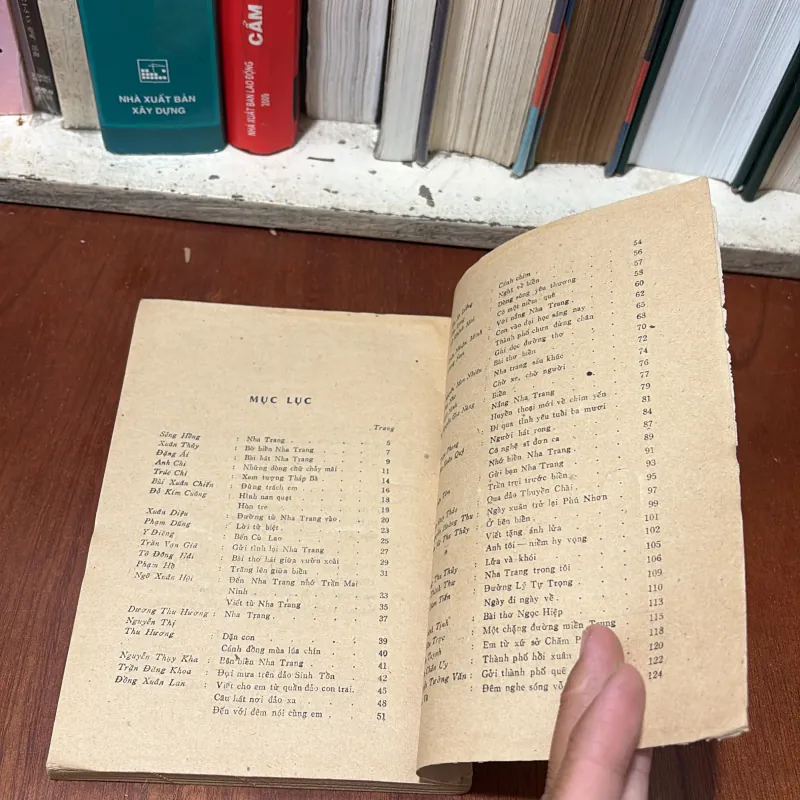 NHÀ XUẤT BẢN
XÂY DỰNG
NHÀ XUẤT BẢN LAO ĐỘNG
2005
CẨM
MỤC LỤC
Trang
Sông Hồng : Nha Trang 5
Xuân Thủy : Bờ biển Nha Trang 7
Đặng Ái : Bài hát Nha Trang 9
Anh Chi : Những dòng chữ chảy mãi 11
Trúc Chi : Xem tượng Tháp Bà 14
Bùi Xuân Chiến : Đừng trách em 16
Đỗ Kim Cuông : Hình nan quạt 18
Hòn tre 19
Xuân Diệu : Đường từ Nha Trang vào 20
Phạm Dũng : Lời từ biệt 23
Y Điêng : Bến Cù Lao 25
Trần Vạn Giã : Gửi tình lại Nha Trang 27
Tô Đông Hải : Bài thơ hát giữa vườn xoài 29
Phạm Hổ : Trăng lên giữa biển 31
Ngô Xuân Hội : Đến Nha Trang nhớ Trần Mai
Ninh 33
Viết từ Nha Trang 35
Dương Thu Hương : Nha Trang 37
Nguyễn Thị
Thu Hương : Dặn con 39
Cánh đồng mùa lúa chín 40
Nguyễn Thụy Kha : Bản biển Nha Trang 41
Trần Đăng Khoa : Đợi mưa trên đảo Sinh Tồn 42
Đồng Xuân Lan : Viết cho em từ quần đảo con trai 45
Câu hát nơi đảo xa 48
Đến với đêm nói cùng em 51
Cánh chim 54
Nghĩ về biển 56
Dòng sông yêu thương 57
Có một niềm quê 58
Với nắng Nha Trang 60
Con vào đại học sáng nay 62
Thành phố chưa dừng chân 65
Ghi dọc đường thơ 68
Bài thơ biển 70
Nha trang sáu khúc 72
Chờ xe, chờ người 74
Biển 76
Nắng Nha Trang 77
Huyền thoại mới về chim yến 79
Đi qua tình yêu tuổi ba mươi 81
Người hát rong 84
Cô nghệ sĩ đơn ca 87
Nhớ biển Nha Trang 89
Gửi bạn Nha Trang 91
Trần trụi trước biển 93
Qua đảo Thuyền Chài 95
Ngày xuân trở lại Phú Nhơn 97
Ở bên biển 99
Viết tặng ánh lửa 101
Anh tôi — niềm hy vọng 102
Lửa và khói 105
Nha Trang trong tôi 106
Đường Lý Tự Trọng 109
Ngày đi ngày về 110
Bài thơ Ngọc Hiệp 113
Một chặng đường miền Trung 115
Em từ xứ sở Chăm 118
Thành phố hồi xuân 120
Tường Vân : Gửi thành phố quê 122
Đêm nghe sóng vỗ 124